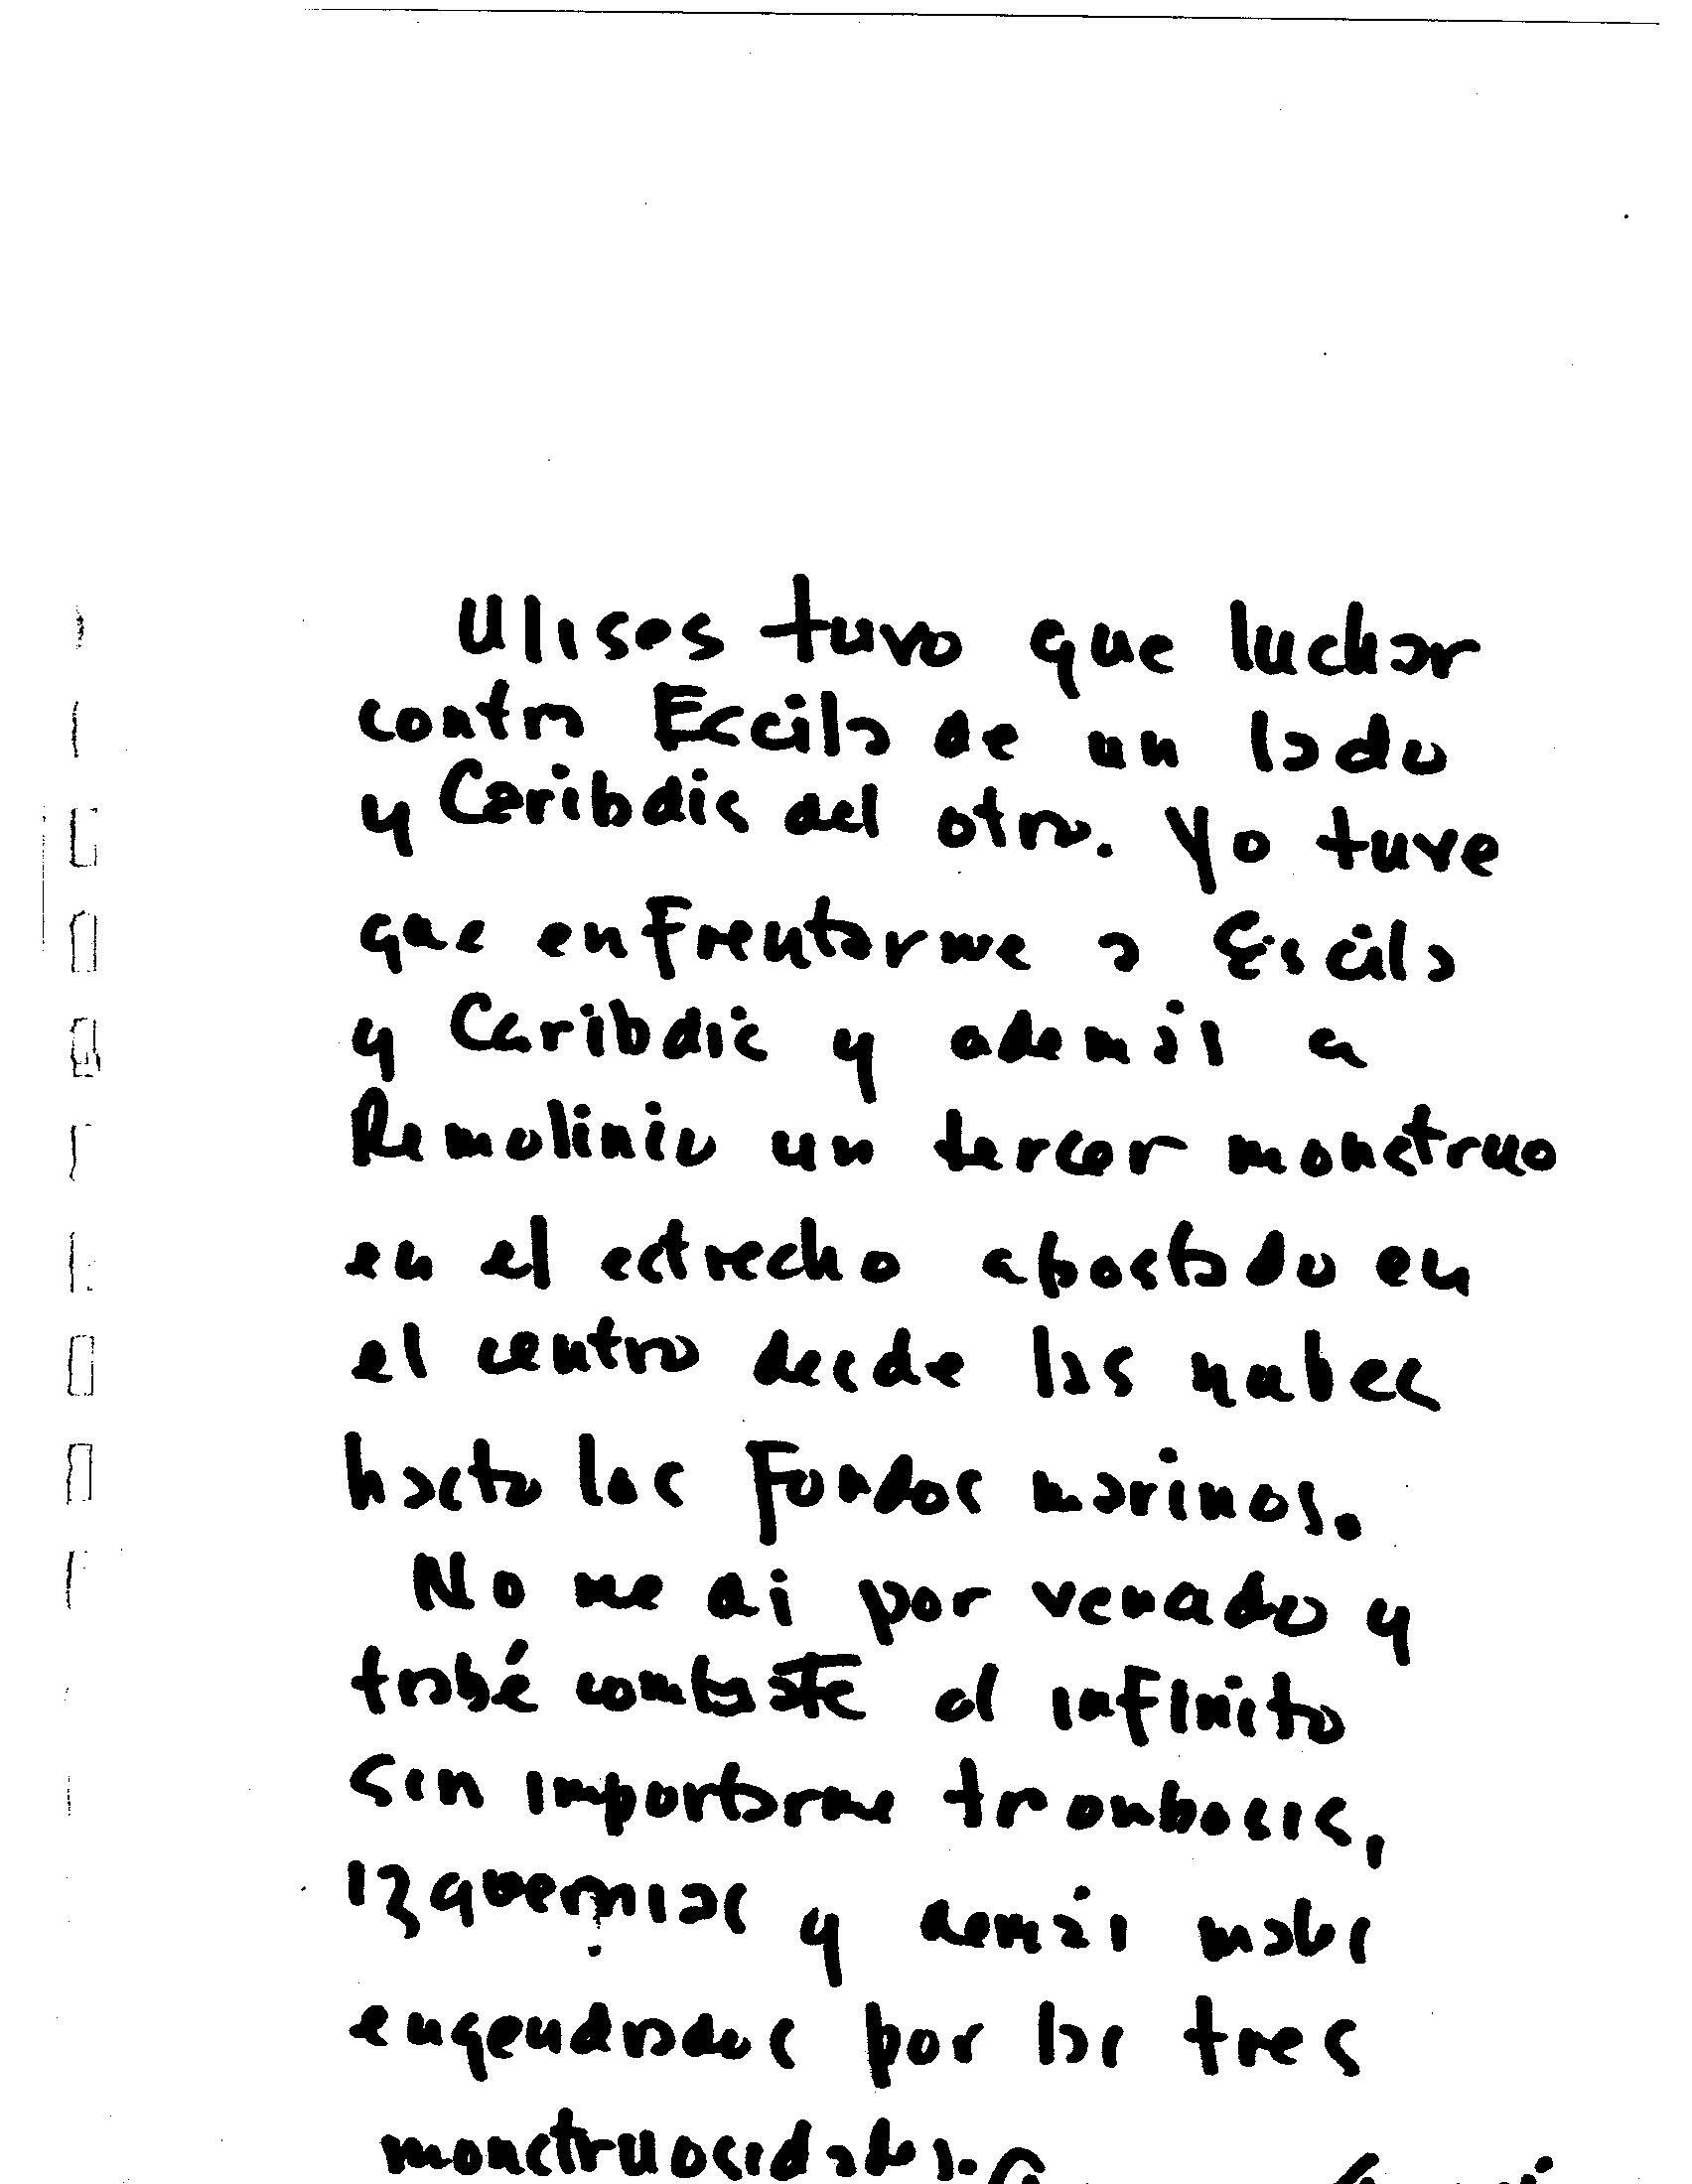 Ulises tuvo que luchar
contra Escila de un lado
y Caribdis del otro. Yo tuve
que enfrentarme a Escila
y Caribdis y además a
Remolinio un tercer monstruo
en el estrecho apostado en
el centro desde las nubes
hasta los fondos marinos.
No me di por venado y
trabé combate al infinito
sin importarme trombosis,
izquemias y demás males
engendrados por las tres
monstruosidades.